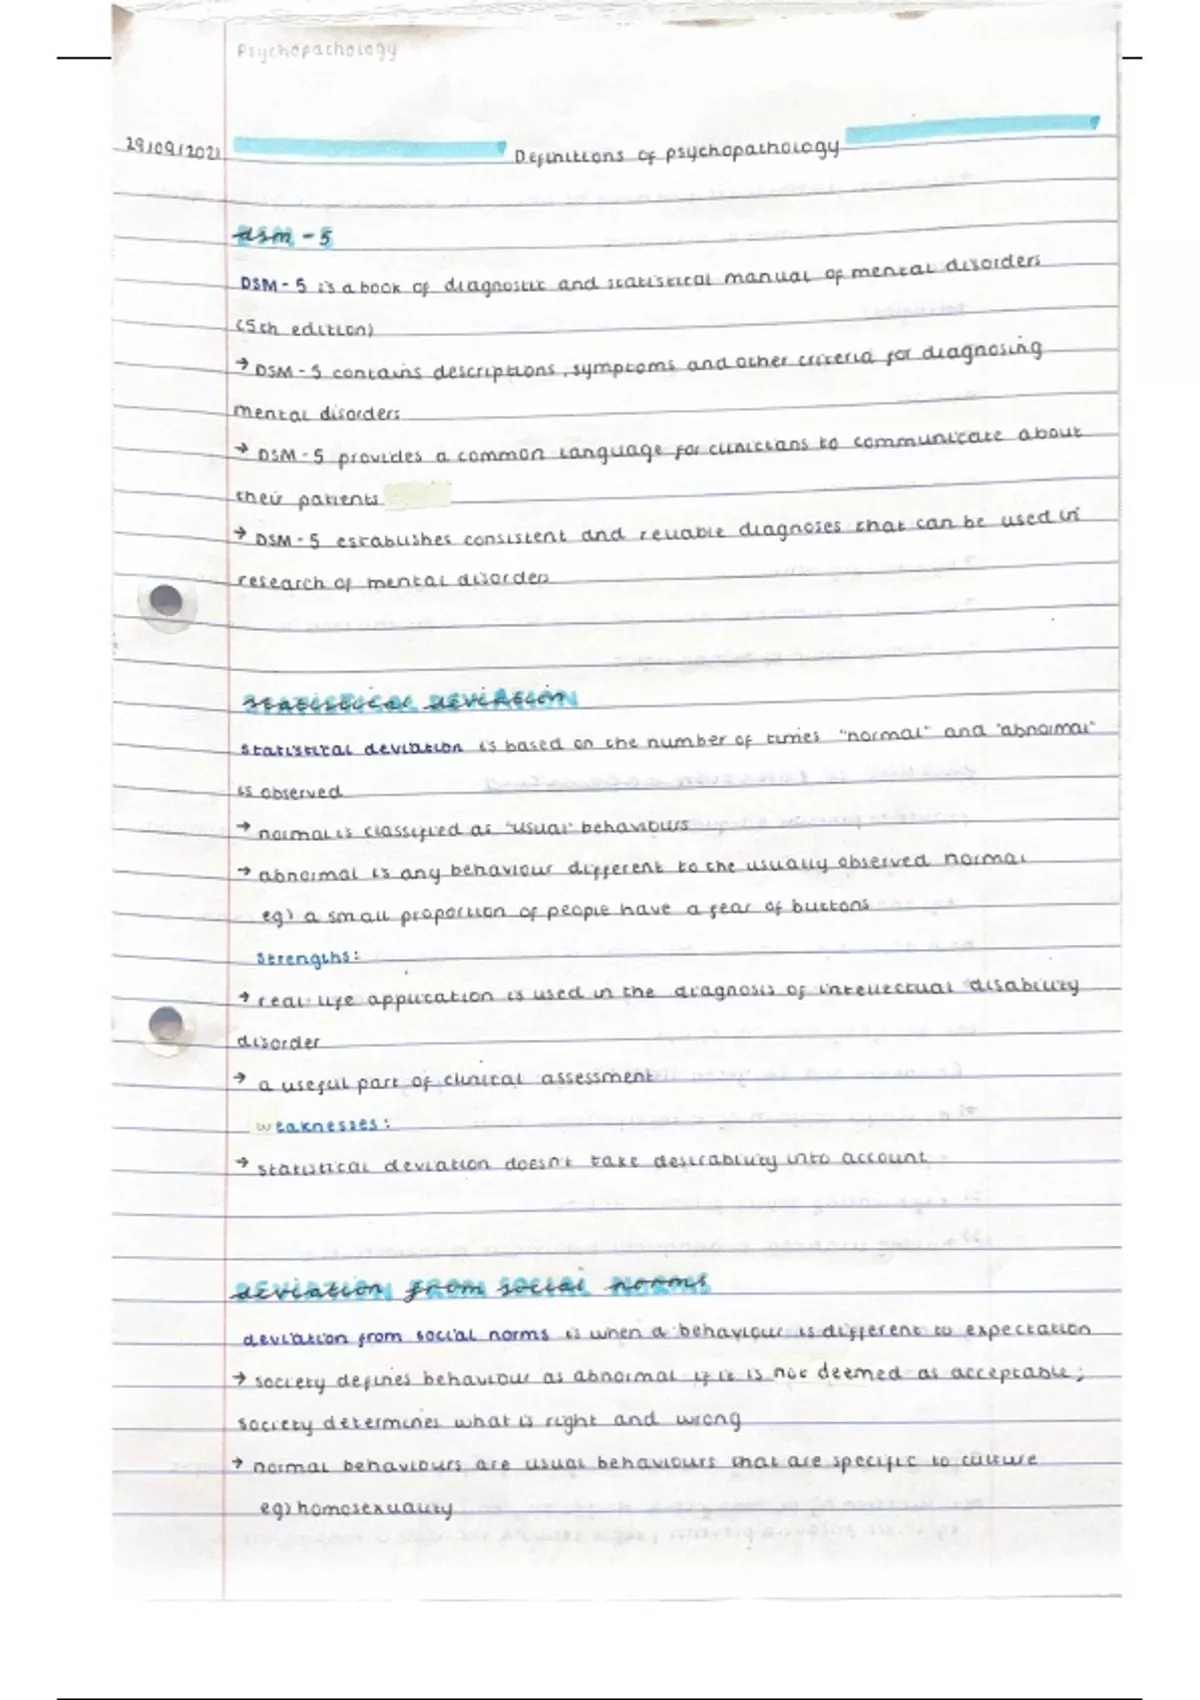 Psychopathology
29/09/2021
Definitions of psychopathology
dsm - 5
DSM - 5 is a book of diagnostic and statistical manual of mental disorders
(5th edition)
→ DSM - 5 contains descriptions, symptoms and other criteria for diagnosing
mental disorders
→ DSM - 5 provides a common language for clinicians to communicate about
their patients
→ DSM - 5 establishes consistent and reliable diagnoses that can be used in
research of mental disorders
statistical deviation
statistical deviation is based on the number of times "normal" and "abnormal"
is observed
→ normal is classified as "usual" behaviours
→ abnormal is any behaviour different to the usually observed normal
eg) a small proportion of people have a fear of buttons
strengths:
→ real life application is used in the diagnosis of intellectual disability
disorder
→ a useful part of clinical assessment
weaknesses:
→ statistical deviation doesn't take desirability into account
deviation from social norms
deviation from social norms is when a behaviour is different to expectation
→ society defines behaviour as abnormal if it is not deemed as acceptable;
society determines what is right and wrong
→ normal behaviours are usual behaviours that are specific to culture
eg) homosexuality